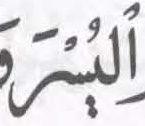 ٱلْيُسْرَ وَ